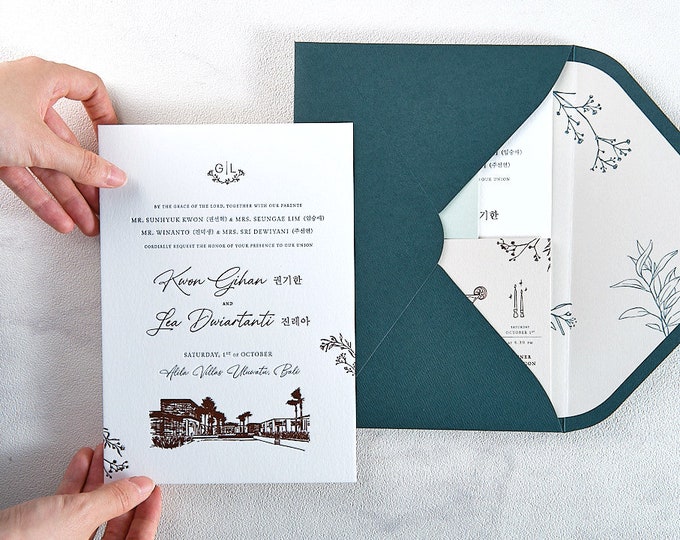 G|L
BY THE GRACE OF THE LORD, TOGETHER WITH OUR PARENTS
MR. SUNHYUK KWON (권선혁) & MRS. SEUNGAE LIM (임승애)
MR. WINANTO (진덕생) & MRS. SRI DEWIYANI (주신현)
CORDIALLY REQUEST THE HONOR OF YOUR PRESENCE TO OUR UNION
Kwon Gihan 권기한
AND
Lea Dwiartanti 진레아
SATURDAY, 1ST OF OCTOBER
Alila Villas Uluwatu, Bali
OUR UNION
기한
SATURDAY
OCTOBER 1ST